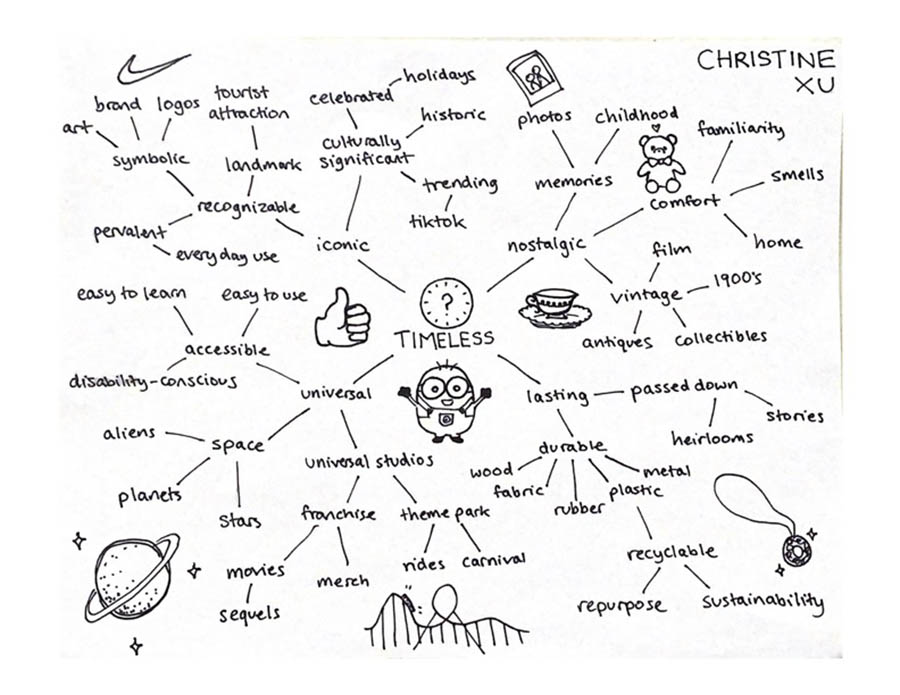 CHRISTINE
XU
brand
logos
art
symbolic
tourist
attraction
landmark
recognizable
pervalent
everyday use
celebrated
holidays
historic
culturally
significant
trending
tiktok
iconic
photos
childhood
memories
familiarity
smells
comfort
home
nostalgic
film
1900's
vintage
antiques
collectibles
?
TIMELESS
easy to learn
easy to use
accessible
disability-conscious
universal
aliens
space
planets
stars
universal studios
franchise
theme park
movies
sequels
merch
rides
carnival
lasting
passed down
stories
heirlooms
durable
wood
fabric
rubber
plastic
metal
recyclable
repurpose
sustainability